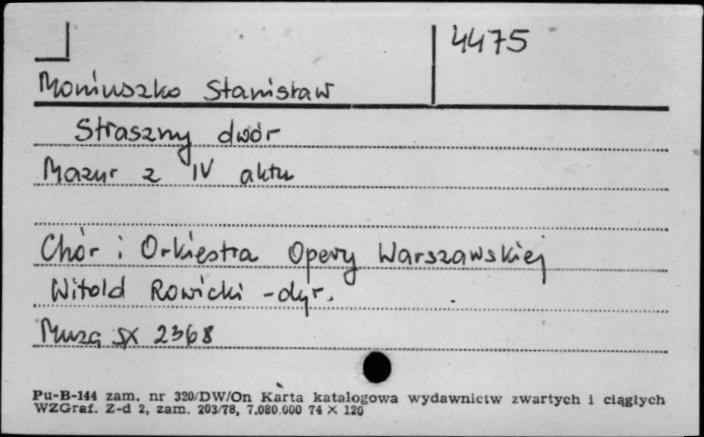 4475
Moniuszko Stanisław
Straszny dwór
Mazur z IV aktu
Chór i Orkiestra Opery Warszawskiej
Witold Rowicki - dyr.
Muza SX 2368
Pu-B-144 zam. nr 320/DW/On Karta katalogowa wydawnictw zwartych i ciągłych
WZGraf. Z-d 2, zam. 203/78, 7.080.000 74 × 120